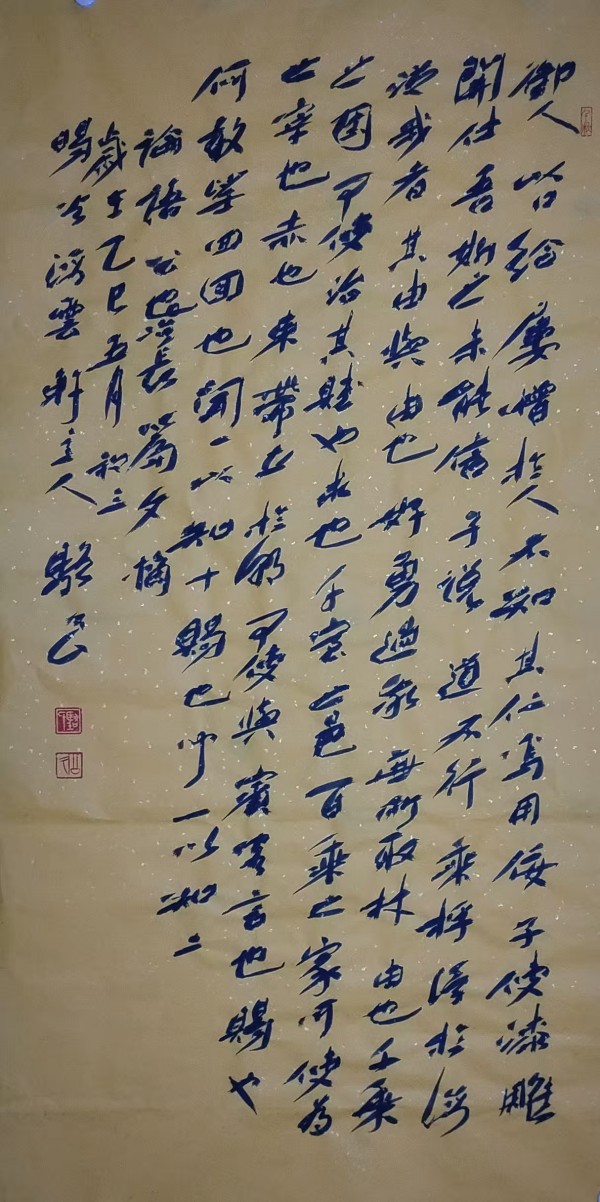 御人以口給屢憎於人不知其仁焉用佞子使漆雕
開仕吾斯之未能信子說道不行乘桴浮於海
從我者其由與由也好勇過我無所取材由也千乘
之國可使治其賦也求也千室之邑百乘之家可使為
之宰也赤也束帶立於朝可使與賓客言也賜也
何敢望回回也聞一以知十賜也聞一以知二
論語公冶長篇摘
歲在乙巳五月初三
海雲軒主人駱